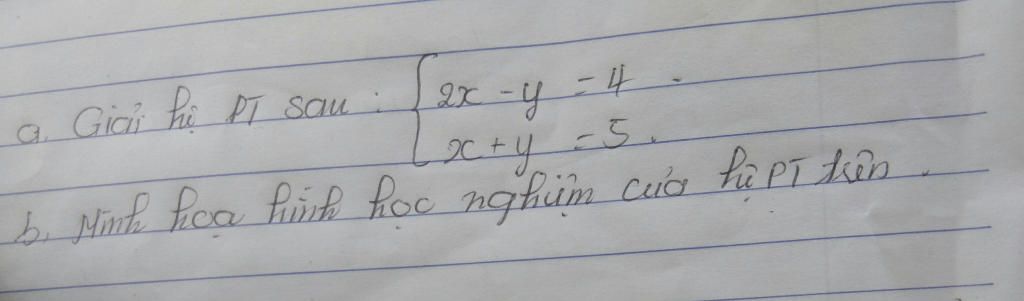 a. Giải hệ PT sau : { 2x - y = 4 .
x + y = 5 .
b. Minh họa hình học nghiệm của hệ PT trên .